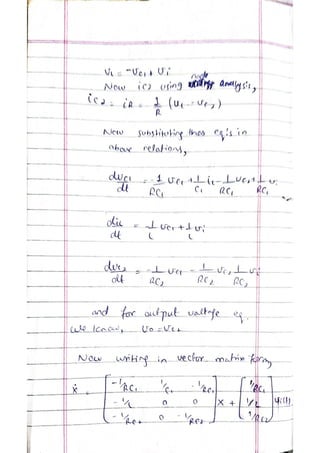 V₁ = -Vc₁ + Vi
Now ic2 using node analysis,
ic2 = iR = 1/R (V₁ - Vc₂)
Now substituting thes eq's in
above relations,
dvc₁/dt = -1/RC₁ Vc₁ + 1/C₁ iL - 1/RC₁ Vc₂ + 1/RC₁ Vi
diL/dt = -1/L Vc₁ + 1/L Vi
dvc₂/dt = -1/RC₂ Vc₁ - 1/RC₂ Vc₂ + 1/RC₂ Vi
and for output voltage eq.
we know, Vo = Vc₂
Now writing in vector matrix form
ẋ = [-1/RC₁ 1/C₁ -1/RC₁; -1/L 0 0; -1/RC₂ 0 -1/RC₂] x + [1/RC₁; 1/L; 1/RC₂] Vi(t)